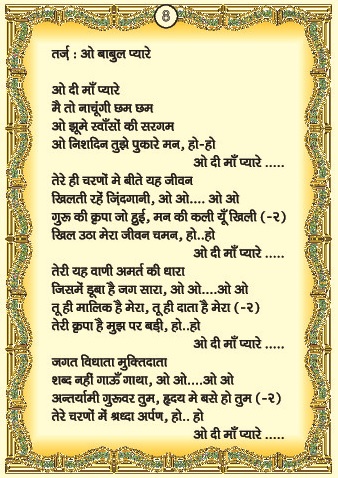 8
तर्ज : ओ बाबुल प्यारे
ओ दी माँ प्यारे
मै तो नाचूंगी छम छम
ओ झूमे स्वाँसों की सरगम
ओ निशदिन तुझे पुकारे मन, हो-हो
ओ दी माँ प्यारे .....
तेरे ही चरणों मे बीते यह जीवन
खिलती रहें जिंदगानी, ओ ओ.... ओ ओ
गुरू की क्रपा जो हुई, मन की कली यूँ खिली (-२)
खिल उठा मेरा जीवन चमन, हो..हो
ओ दी माँ प्यारे .....
तेरी यह वाणी अमर्त की धारा
जिसमें डूबा है जग सारा, ओ ओ....ओ ओ
तू ही मालिक है मेरा, तू ही दाता है मेरा (-२)
तेरी क्रपा है मुझ पर बड़ी, हो..हो
ओ दी माँ प्यारे .....
जगत विधाता मुक्तिदाता
शब्द नहीं गाऊँ गाथा, ओ ओ....ओ ओ
अन्तर्यामी गुरूवर तुम, ह्रदय मे बसे हो तुम (-२)
तेरे चरणों में श्रध्दा अर्पण, हो.. हो
ओ दी माँ प्यारे .....